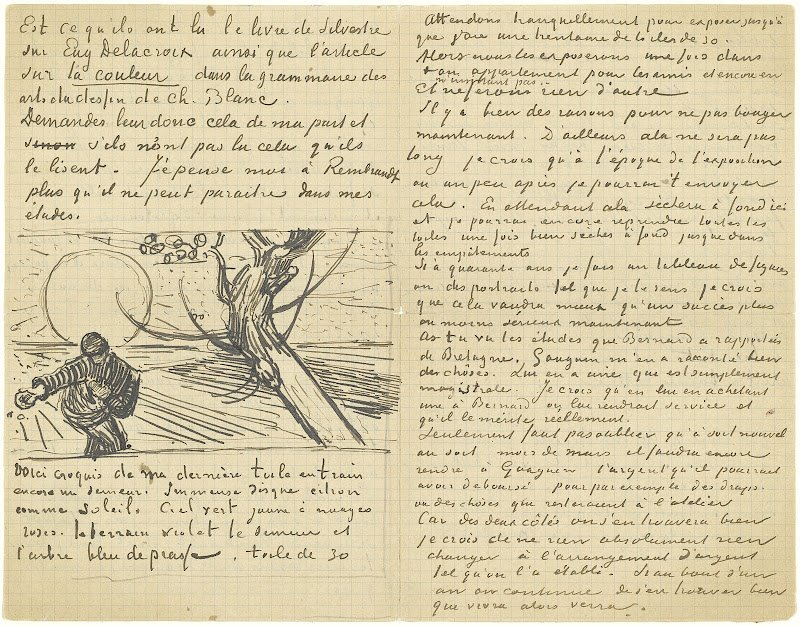 Est ce qu'ils ont lu le livre de Silvestre
sur Eug Delacroix ainsi que l'article
sur la couleur dans la grammaire des
arts du dessin de Ch. Blanc.
Demandes leur donc cela de ma part et
sinon s'ils n'ont pas lu cela qu'ils
le lisent. J'epense moi à Rembrandt
plus qu'il ne peut paraitre dans mes
études.
Voici croquis de ma dernière toile en train
encore un semeur. Immense disque citron
comme soleil. Ciel vert jaune à nuages
roses. le terrain violet le semeur et
l'arbre bleu de prusse. toile de 30
Attendons tranquillement pour exposer jusqu'à
que j'aie une trentaine de toiles de 30.
Alors nous les exposerons une fois dans
ton appartement pour les amis et encore en
n'insistant pas.
Et ne ferons rien d'autre
Il y a bien des raisons pour ne pas bouger
maintenant. D'ailleurs cela ne sera pas
long je crois qu'à l'époque de l'exposition
ou un peu après je pourrai t'envoyer
cela. En attendant cela sèchera à fond ici
et je pourrai encore reprendre toutes les
toiles une fois bien sèches à fond jusque dans
les empâtements
Si à quarante ans je fais un tableau de figures
ou des portraits tel que je le sens je crois
que cela vaudra mieux qu'un succès plus
ou moins sérieux maintenant
As tu vu les études que Bernard a rapportées
de Bretagne, Gauguin m'en a raconté bien
des choses. Lui en a une qui est simplement
magistrale. Je crois qu'en lui en achetant
une à Bernard on lui rendrait service et
qu'il le mérite réellement.
Seulement faut pas oublier qu'à soit nouvel
an soit mois de mars il faudra encore
rendre à Gauguin l'argent qu'il pourrait
avoir déboursé pour par exemple des draps.
ou des choses qui resteraient à l'atelier
Car des deux côtés on s'en trouvera bien
je crois de ne rien absolument rien
changer à l'arrangement d'argent
tel qu'on l'a établi. Si au bout d'un
an on continue de s'en trouver bien
que vivra alors verra.